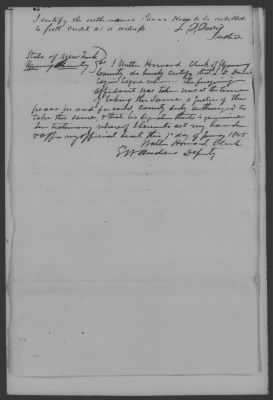 I certify the withnamed Grace Howe to be entitled
to full credit as a witness
L. P. Davis
Justice
State of New York
Wyoming County } ss I Walter Howard Clerk of Wyoming
County do hereby certify that L. P. Davis
Esquire before whom the foregoing
affidavit was taken was at the time
of taking the same a Justice of the
peace in and for said County duly authorized to
take the same, & that his signature thereto is genuine
In testimony whereof I hereunto set my hand
& affix my official seal this day of 1845
Walter Howard Clerk
Deputy